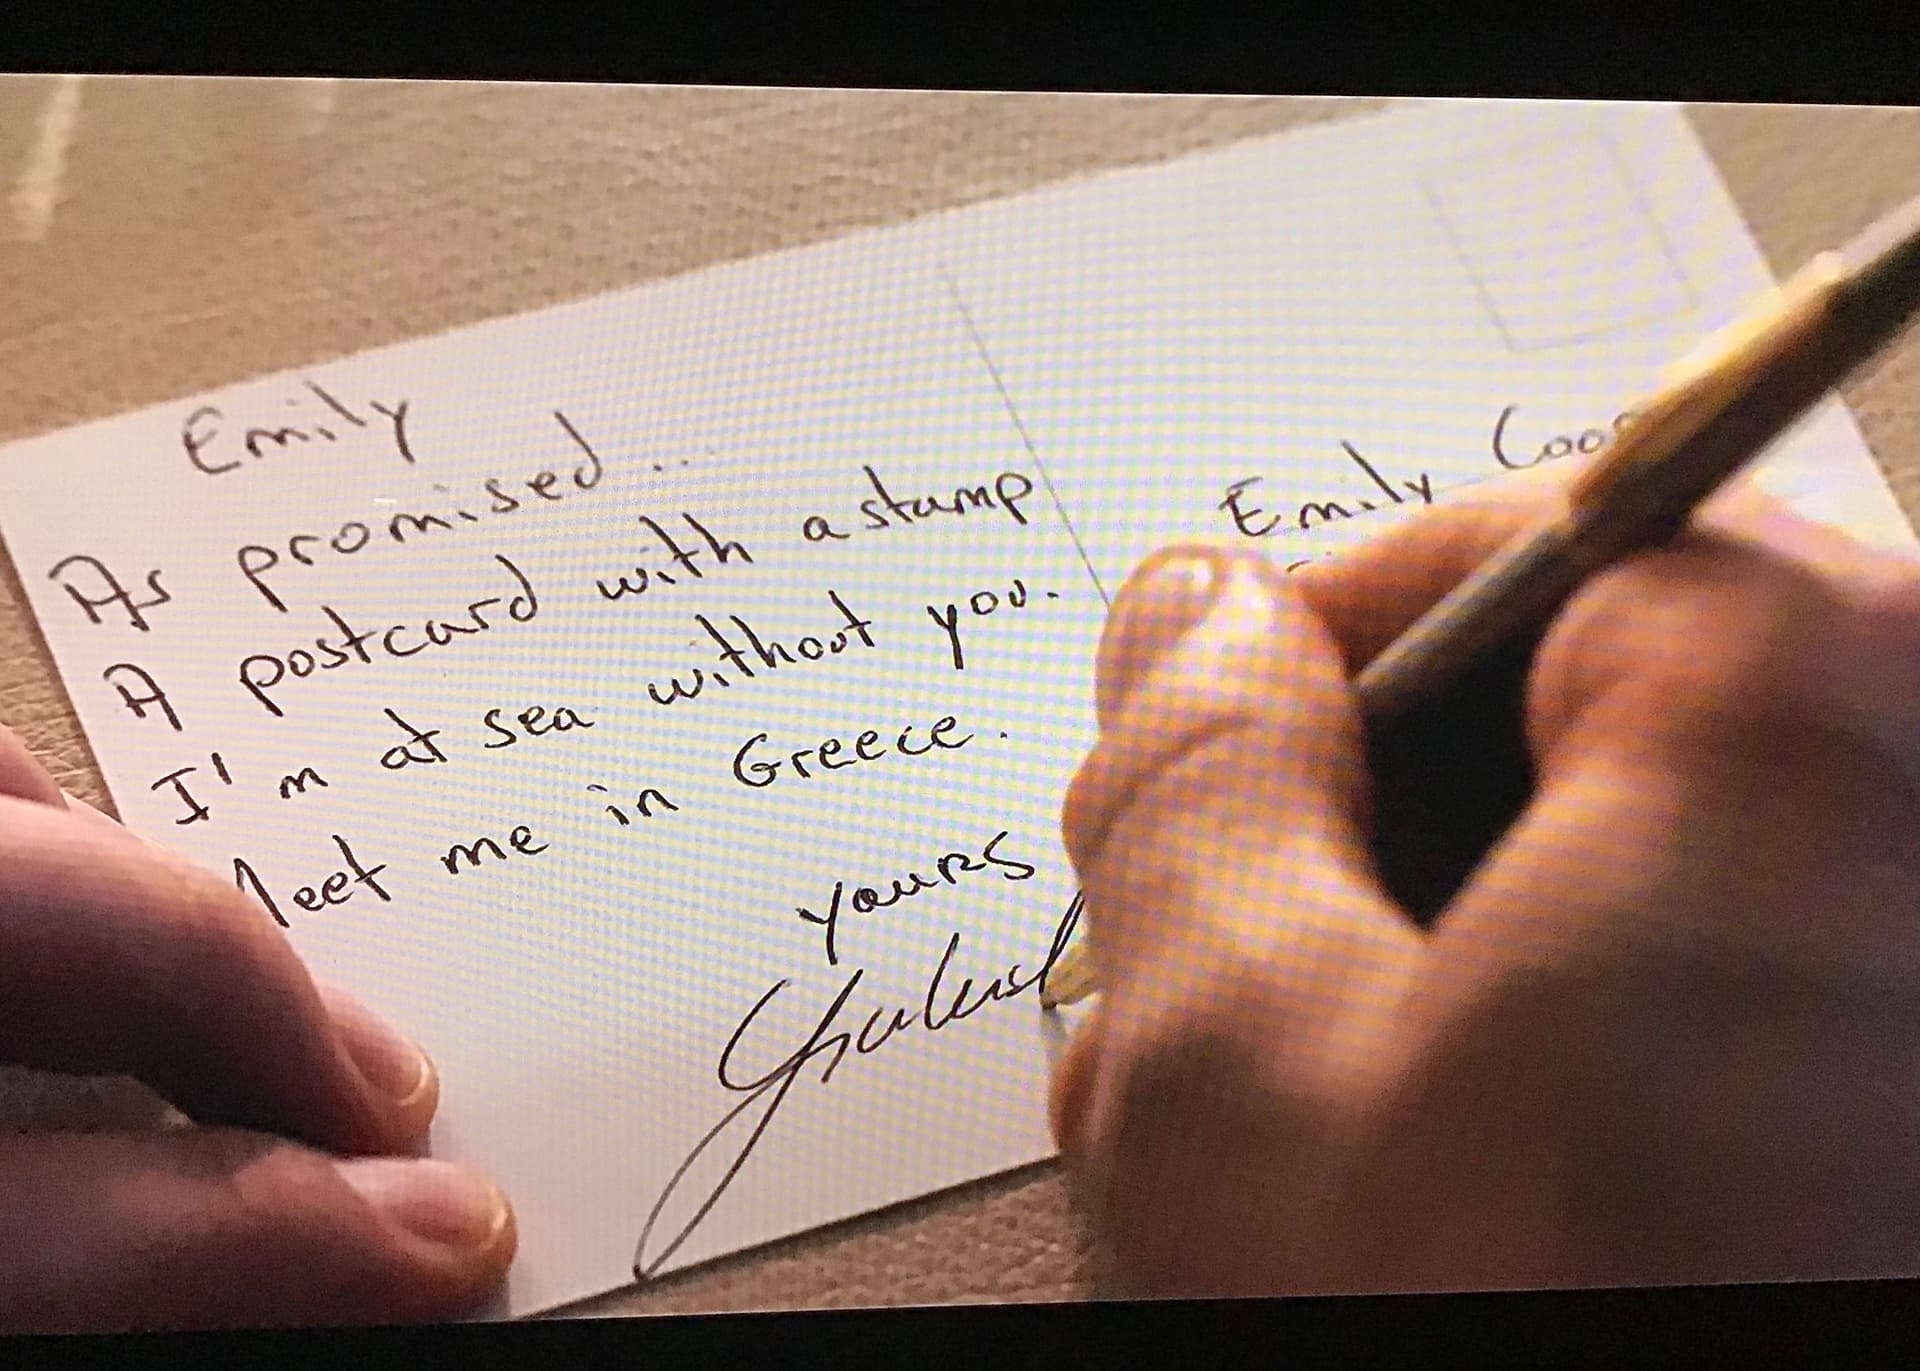 Emily
As promised...
A postcard with a stamp
I'm at sea without you.
eet me in Greece.
yours
Emily Coo